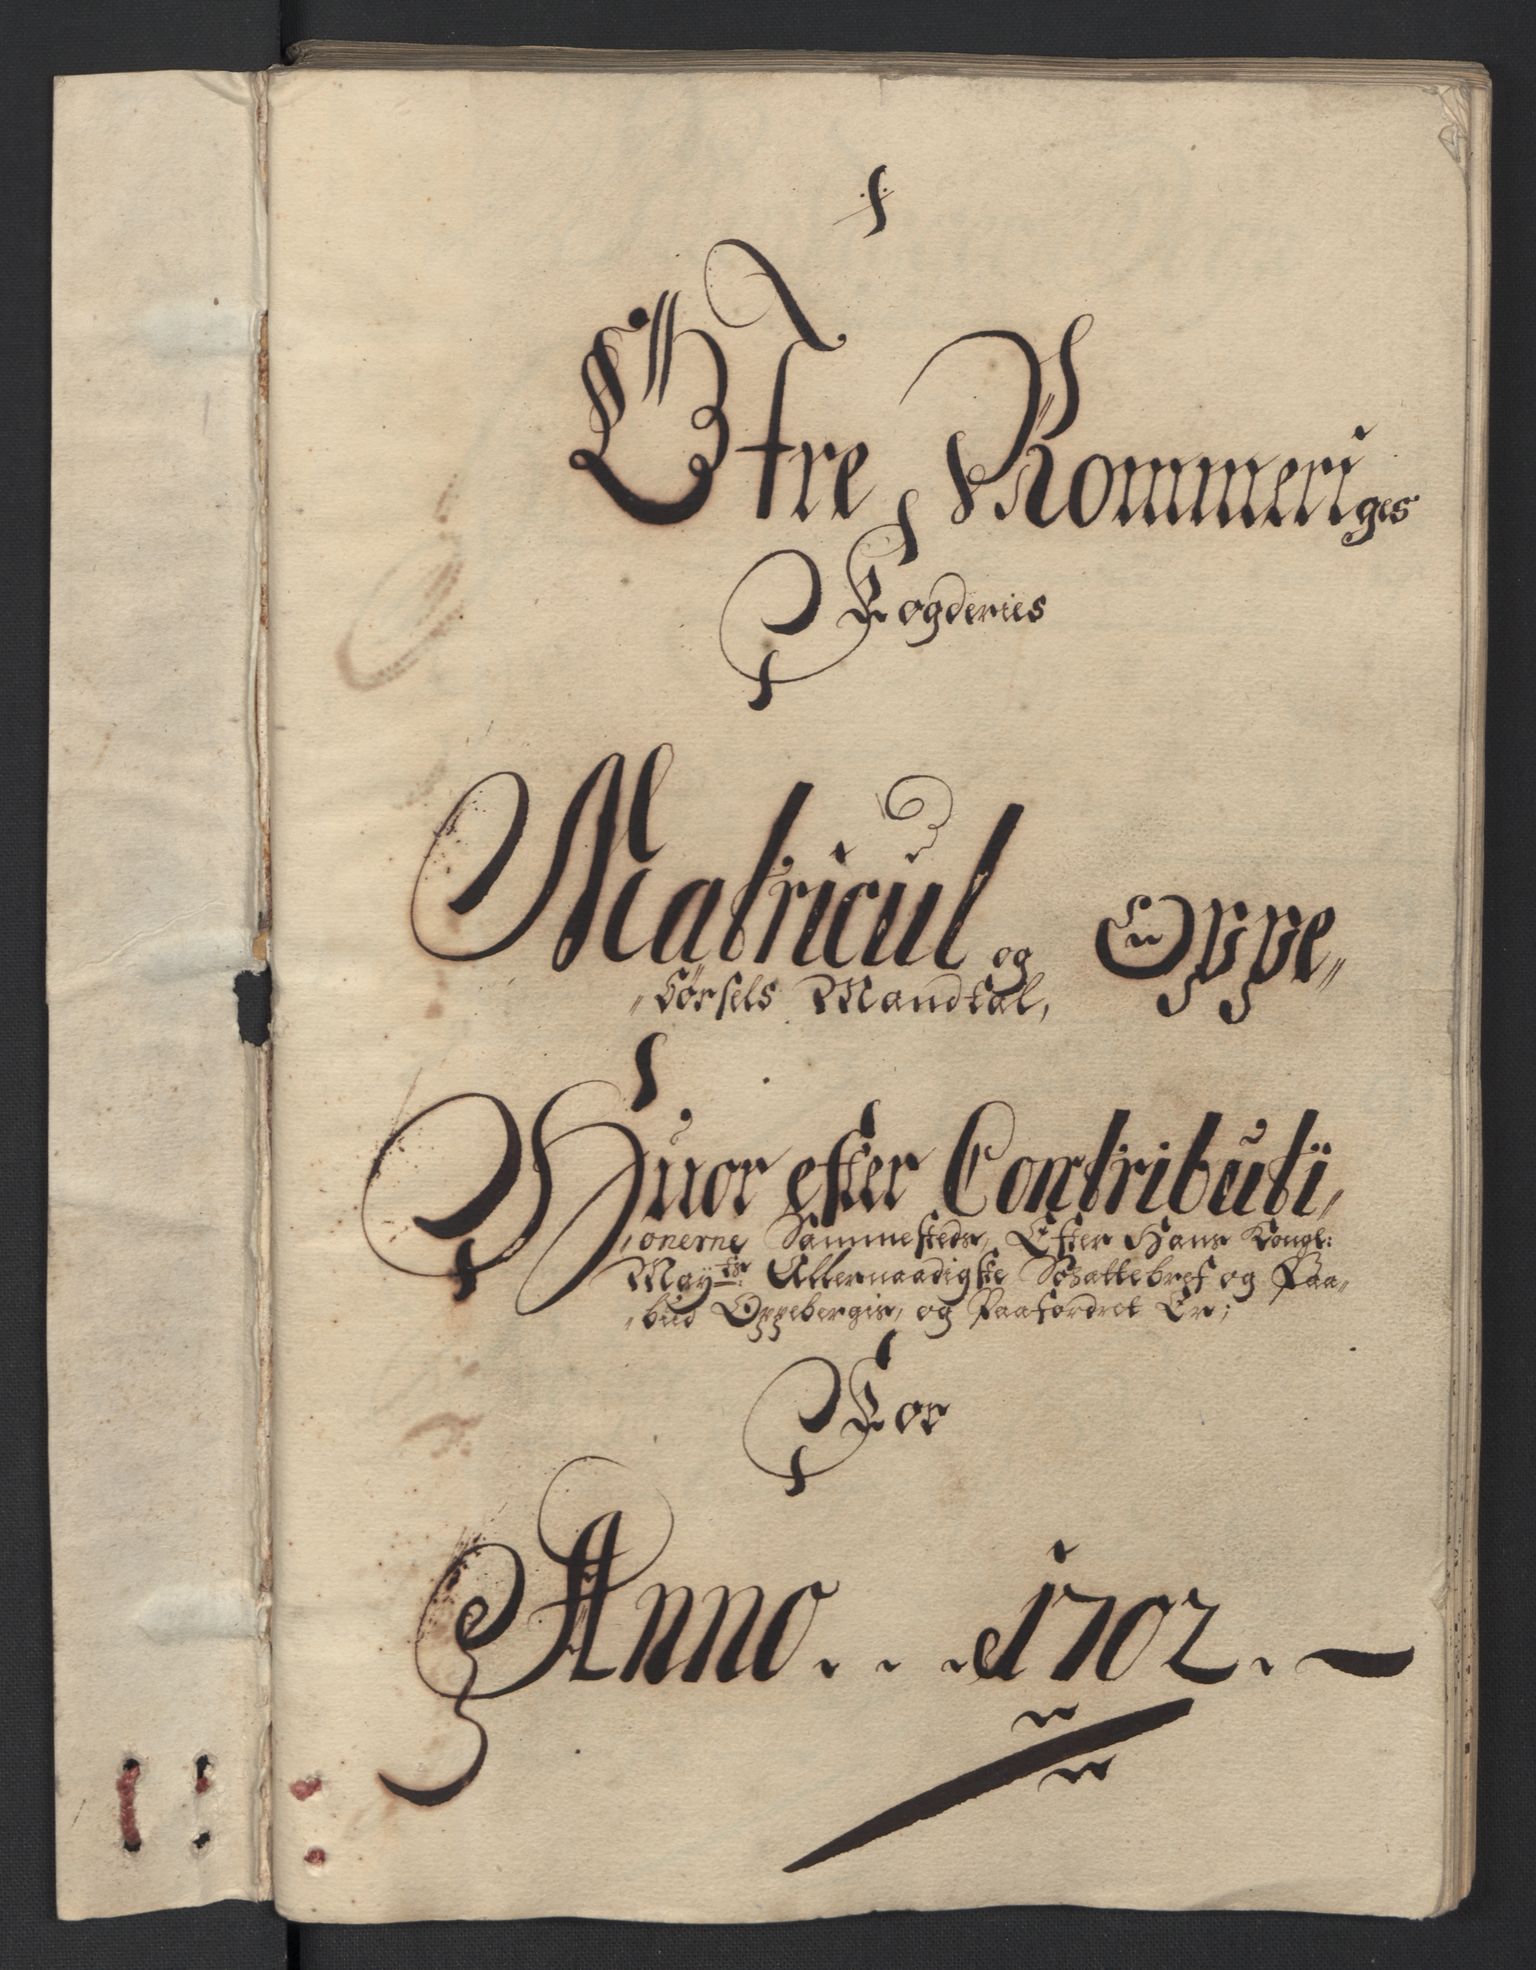 Øfre Rommeriges
Fogderies
Matricul og Oppe-
"børsels Mandtal,
Huor efter Contributi,,
,onerne Sammesteds, Efter Hans Kongl:
Maytz: Allernaadigste Schattebref og Paa-
"bud Oppebergis, og Paafordret Er;
For
Anno . . . 1702. —